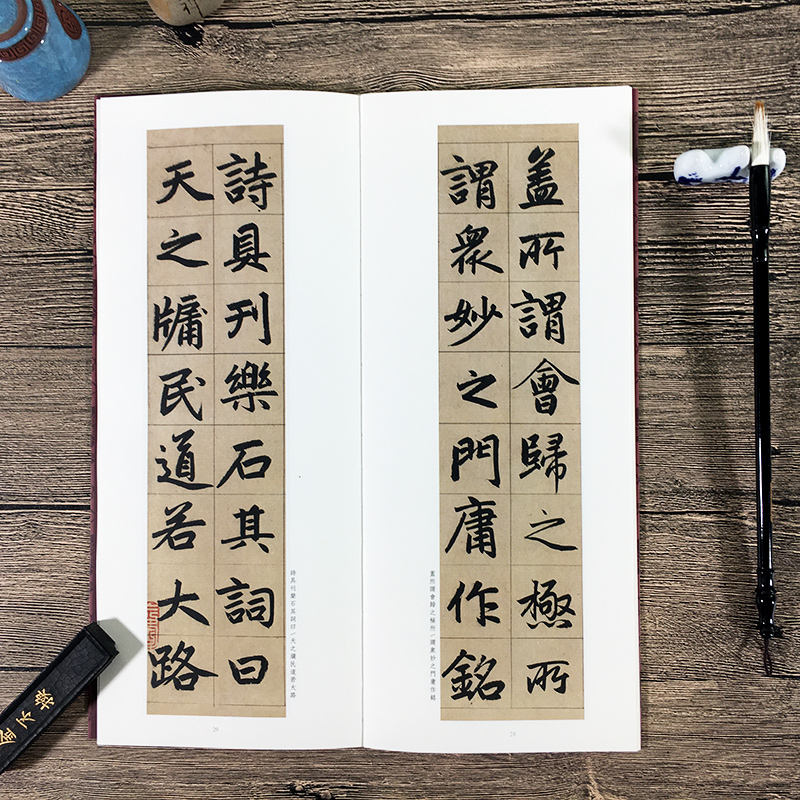 盖所謂會歸之極所
謂衆妙之門庸作銘
蓋所謂會歸之極所—謂衆妙之門庸作銘
28
詩具刊樂石其詞曰
天之牖民道若大路
詩具刊樂石其詞曰—天之牖民道若大路
29
金不換